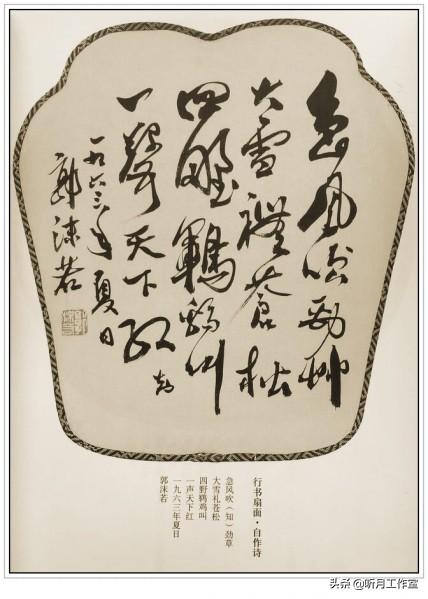 急風吹劲艸
大雪禮蒼松
四野鶤鷄叫
一聲天下红 知
一九六三年夏日
郭沫若
行书扇面·自作诗
急风吹（知）劲草
大雪礼苍松
四野鸡叫
一声天下红
一九六三年夏日
郭沫若
头条 @听月工作室